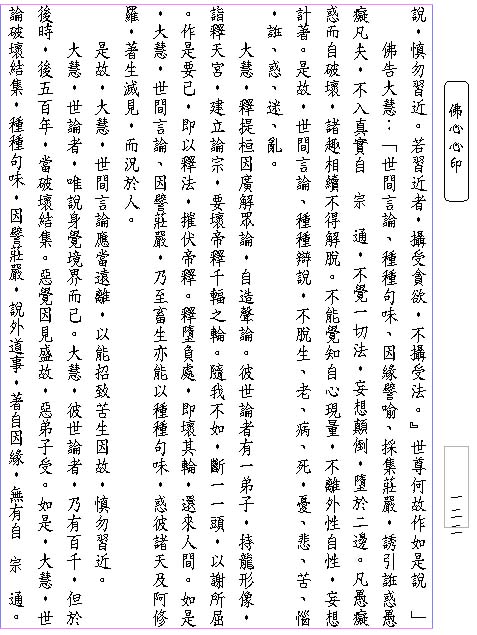 佛心心印
一二二
說，慎勿習近。若習近者，攝受貪欲，不攝受法。』世尊何故作如是說」
佛告大慧：「世間言論、種種句味、因緣譬喻、採集莊嚴，誘引誑惑愚
癡凡夫，不入真實自　宗　通，不覺一切法，妄想顛倒，墮於二邊。凡愚癡
惑而自破壞，諸趣相續不得解脫。不能覺知自心現量，不離外性自性，妄想
計著。是故，世間言論、種種辯說，不脫生、老、病、死，憂、悲、苦、惱
，誑、惑、迷、亂。
大慧，釋提桓因廣解眾論，自造聲論。彼世論者有一弟子，持龍形像，
詣釋天宮，建立論宗，要壞帝釋千輻之輪。隨我不如，斷一一頭，以謝所屈
。作是要已，即以釋法，摧伏帝釋。釋墮負處，即壞其輪，還來人間。如是
，大慧，世間言論、因譬莊嚴，乃至畜生亦能以種種句味，惑彼諸天及阿修
羅，著生滅見，而況於人。
是故，大慧，世間言論應當遠離，以能招致苦生因故，慎勿習近。
大慧，世論者，唯說身覺境界而已。大慧，彼世論者，乃有百千，但於
後時，後五百年，當破壞結集。惡覺因見盛故，惡弟子受。如是，大慧，世
論破壞結集，種種句味，因譬莊嚴，說外道事，著自因緣，無有自　宗　通。